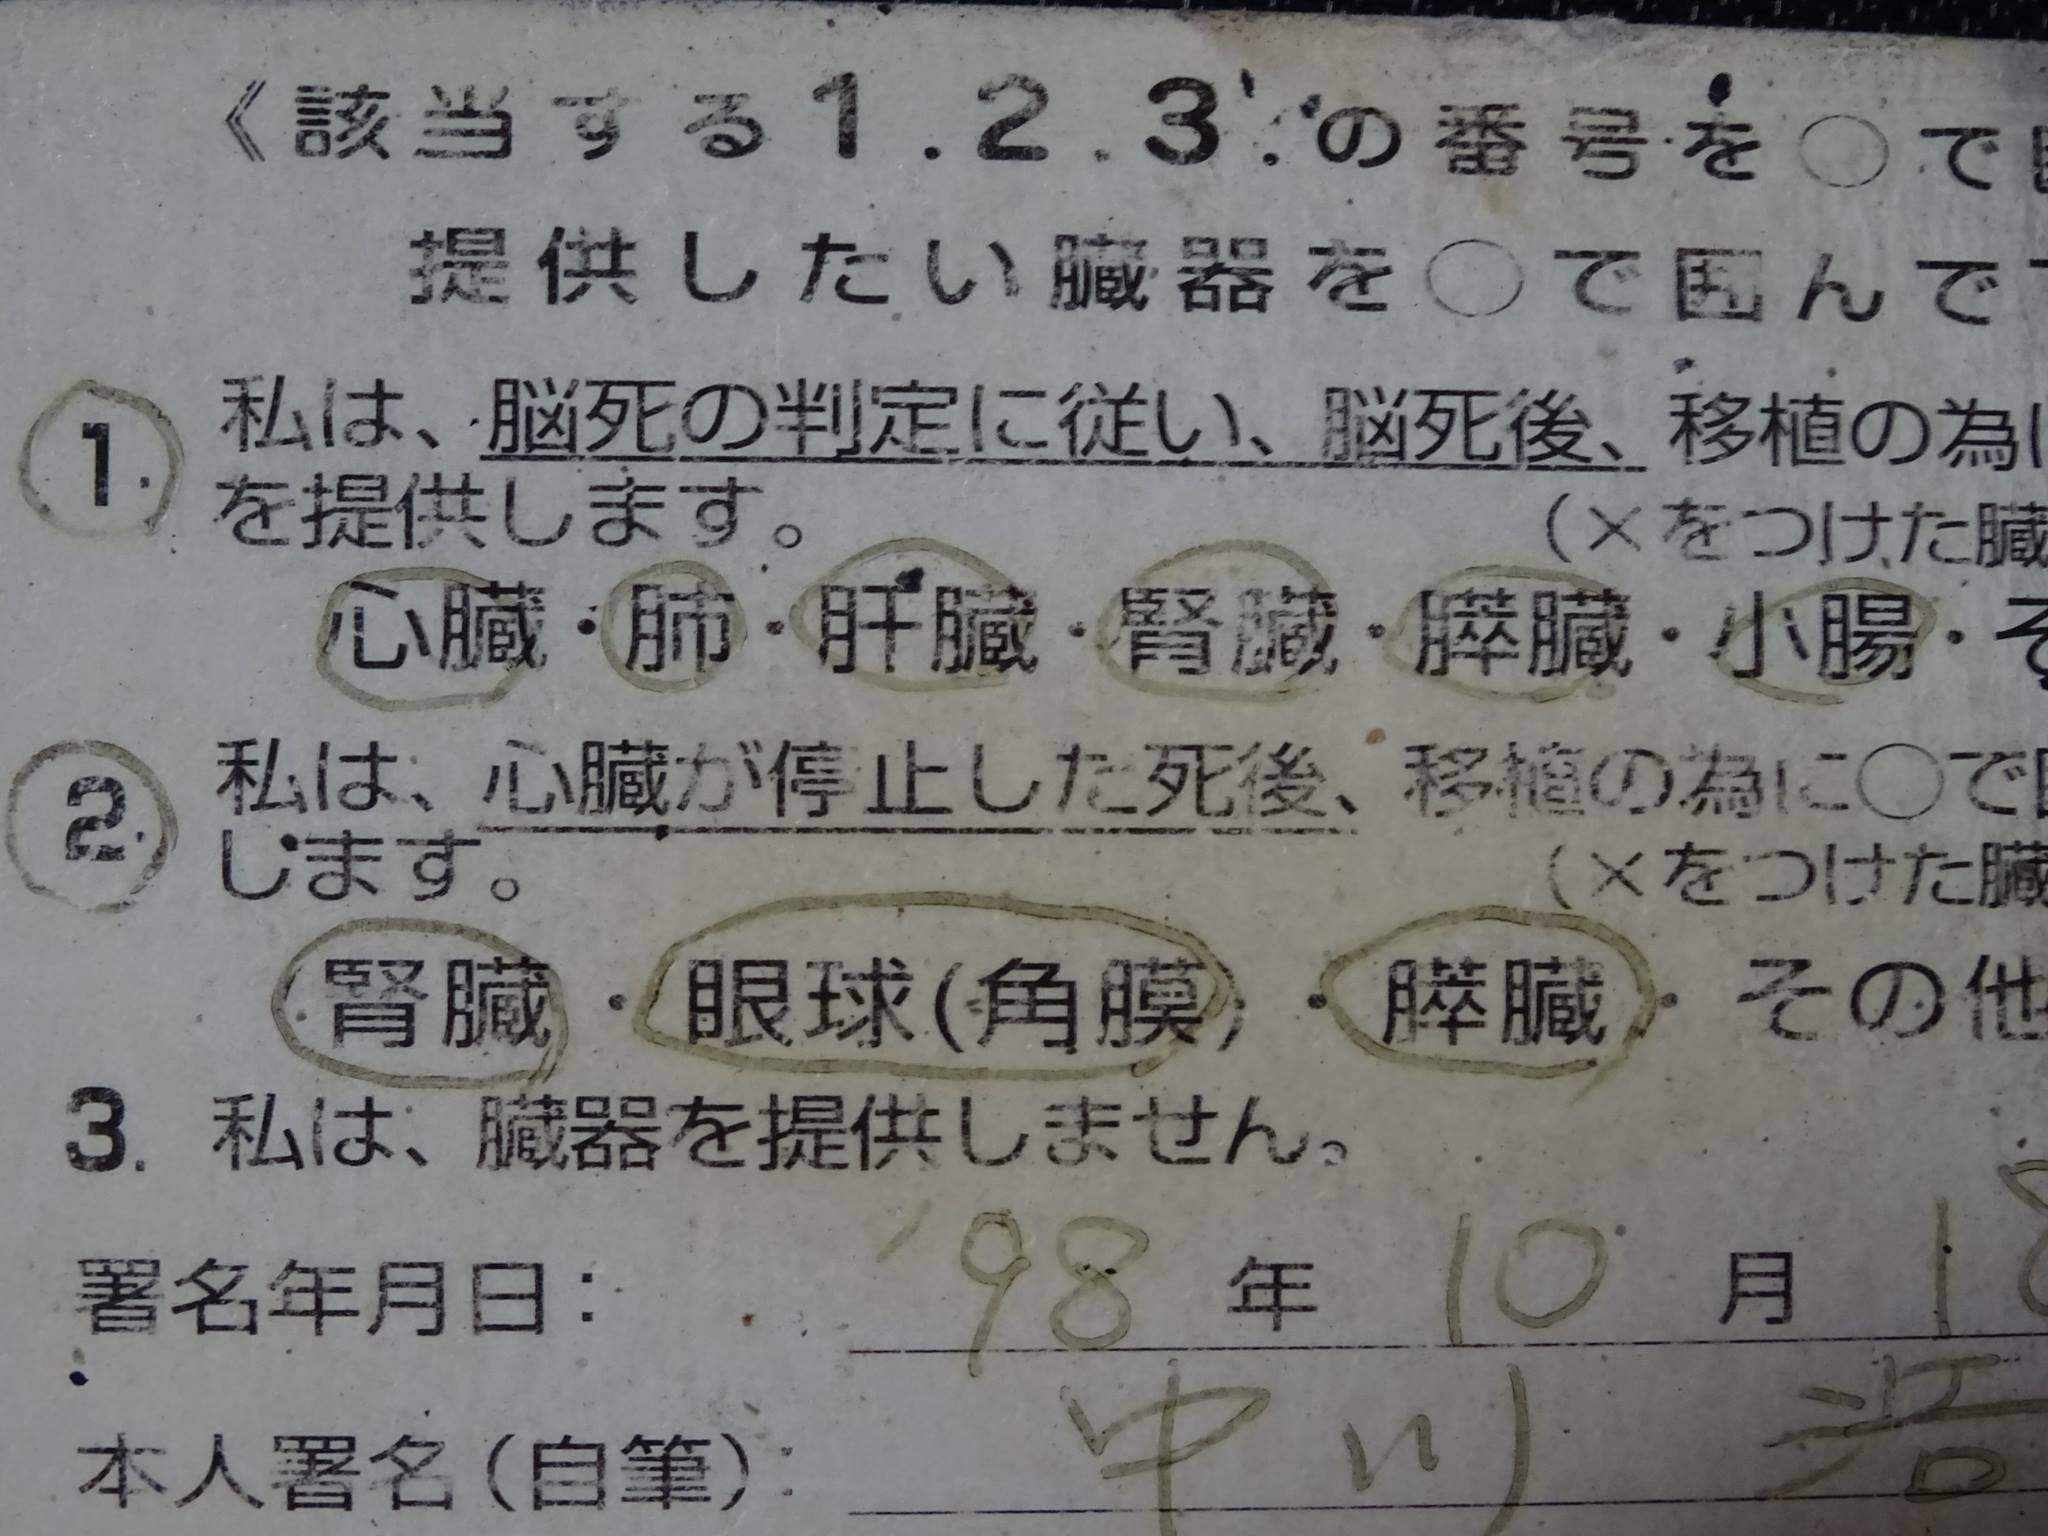 《該当する1.2.3.の番号を○で
提供したい臓器を○で囲んで
1. 私は、脳死の判定に従い、脳死後、移植の為に
を提供します。 (×をつけた臓
心臓・肺・肝臓・腎臓・膵臓・小腸・そ
2. 私は、心臓が停止した死後、移植の為に○で囲
します。 (×をつけた臓
腎臓・眼球(角膜)・膵臓・その他
3. 私は、臓器を提供しません。
署名年月日: '98 年 10 月 18
本人署名(自筆): 中川 浩